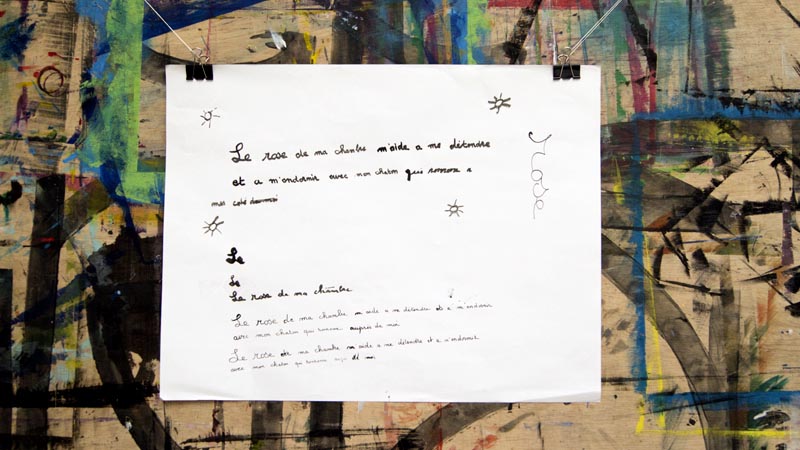 Le rose de ma chambre m'aide a me détendre
et a m'endormir avec mon chaton qui ronronne a
mes coté
rose
Le
Le
Le rose de ma chambre
Le rose de ma chambre m aide a me détendre et a m'endormir
avec mon chaton qui ronronne auprès de moi
Le rose de ma chambre m aide a me détendre et a m'endormir
avec mon chaton qui ronronne